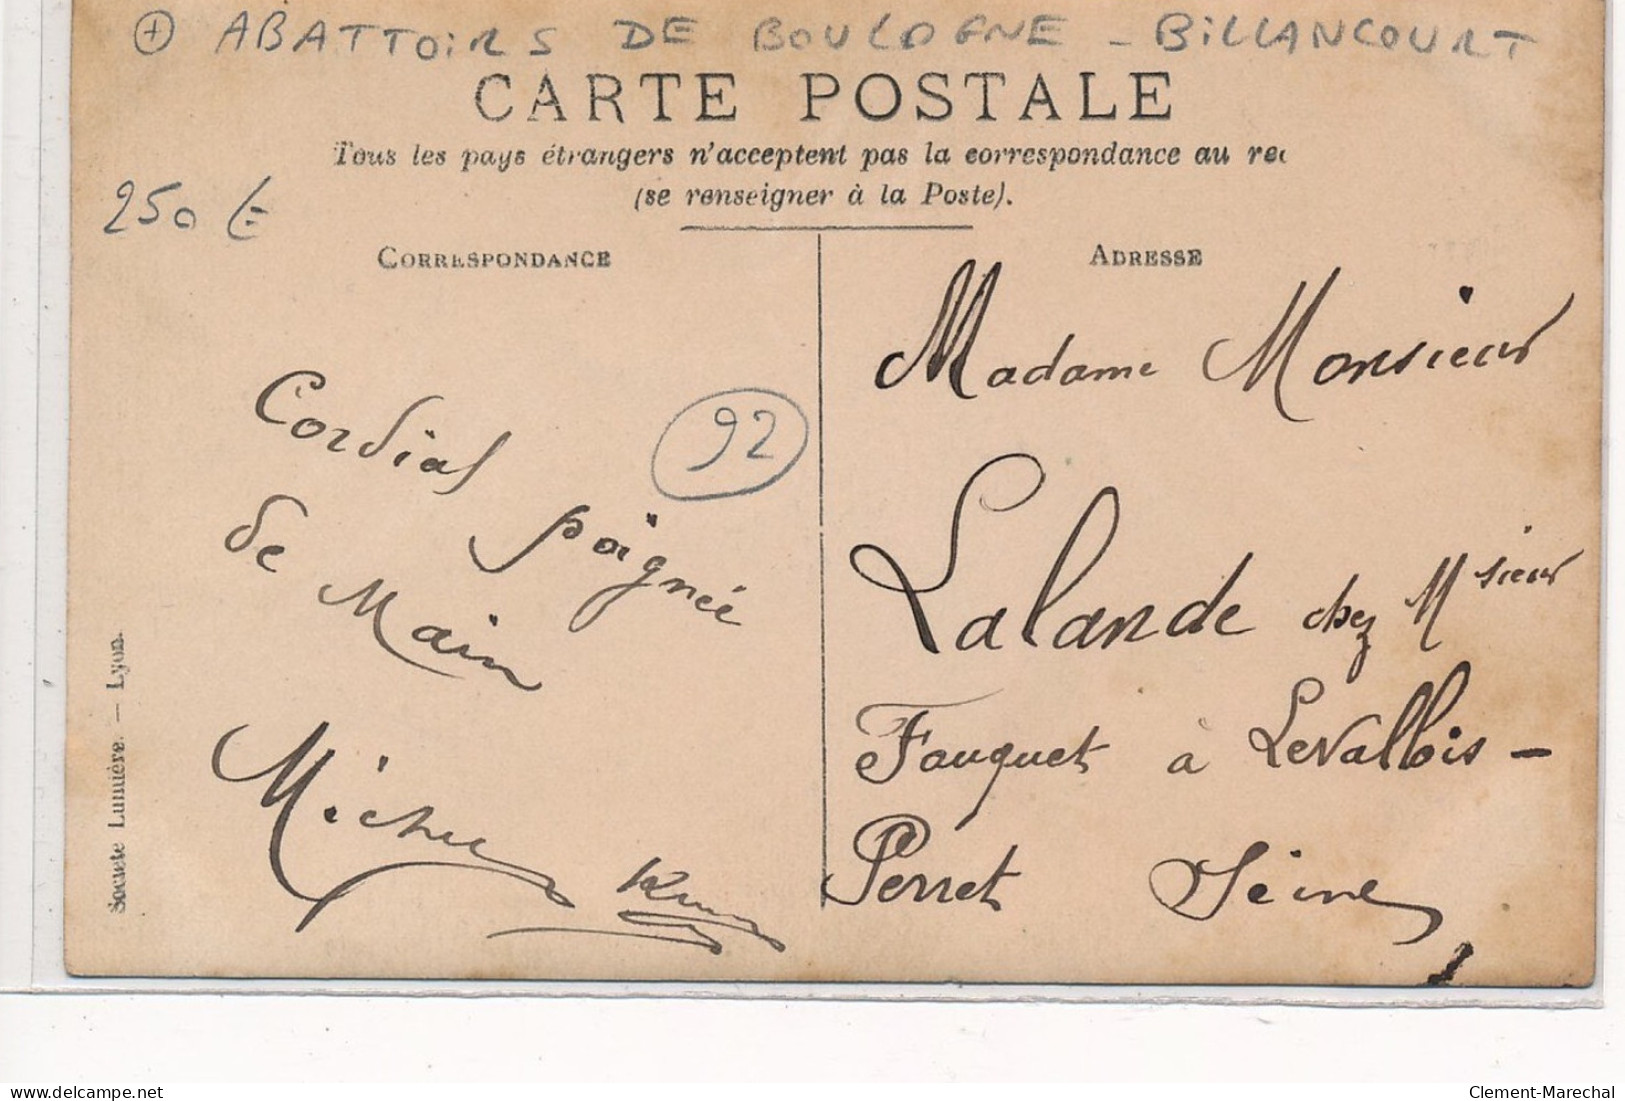 + ABATTOIRS DE BOULOGNE - BILLANCOURT
CARTE POSTALE
Tous les pays étrangers n'acceptent pas la correspondance au rec
(se renseigner à la Poste).
250 €
CORRESPONDANCE
Cordial poignée
de Main
92
Societe Lumière. — Lyon.
ADRESSE
Madame Monsieur
Lalande chez Msieur
Fouquet à Levallois-
Perret Seine
delcampe.net
Clement-Marechal